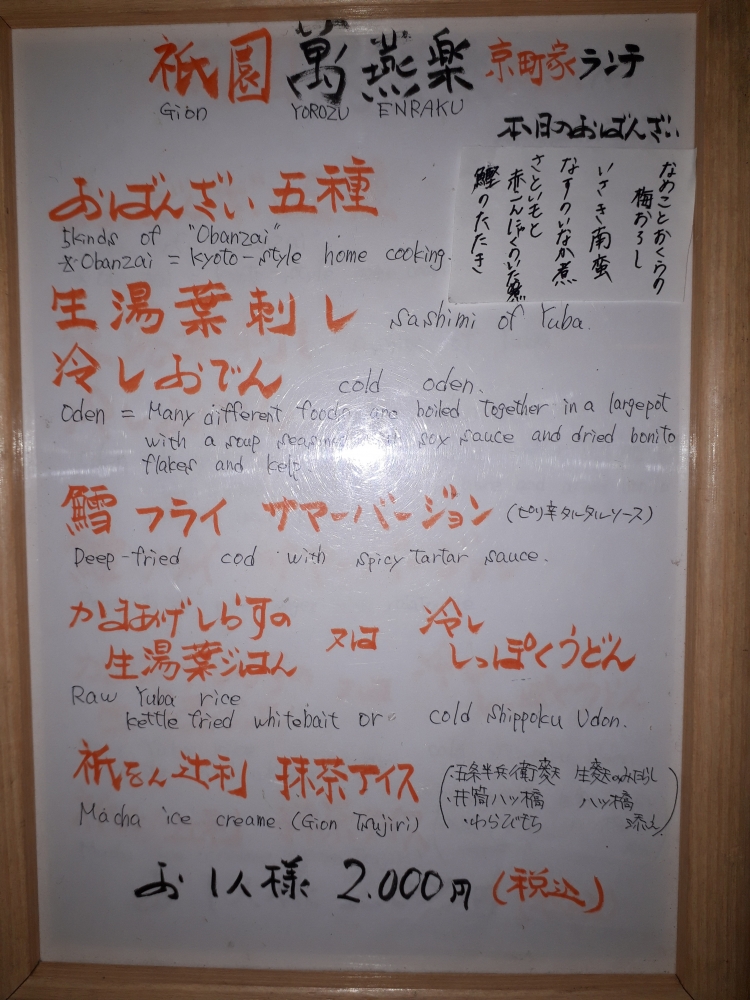 祇園 萬燕楽 京町家ランチ
Gion YOROZU ENRAKU
本日のおばんざい
なめことおくらの
梅おろし
いさき南蛮
なすのいなか煮
さといもと
赤こんにゃくのいた煮
鰹のたたき
おばんざい 五種
5kinds of "Obanzai"
※Obanzai = Kyoto-style home cooking.
生湯葉刺し sashimi of Yuba.
冷しおでん cold oden.
Oden = Many different foods are boiled together in a large pot
with a soup seasined with soy sauce and dried bonito
flakes and kelp.
鱈フライ サマーバージョン (ピリ辛タルタルソース)
Deep-fried cod with spicy tartar sauce.
かまあげしらすの
生湯葉ごはん 又は 冷し
しっぽくうどん
Raw Yuba rice
kettle fried whitebait or cold Shippoku Udon.
祇をん辻利 抹茶アイス
Macha ice creame. (Gion Tsujiri)
(・五条半兵衛麩 生麩のみたらし
・井筒八ッ橋 八ッ橋
・わらびもち 添え)
お1人様 2.000円 (税込)